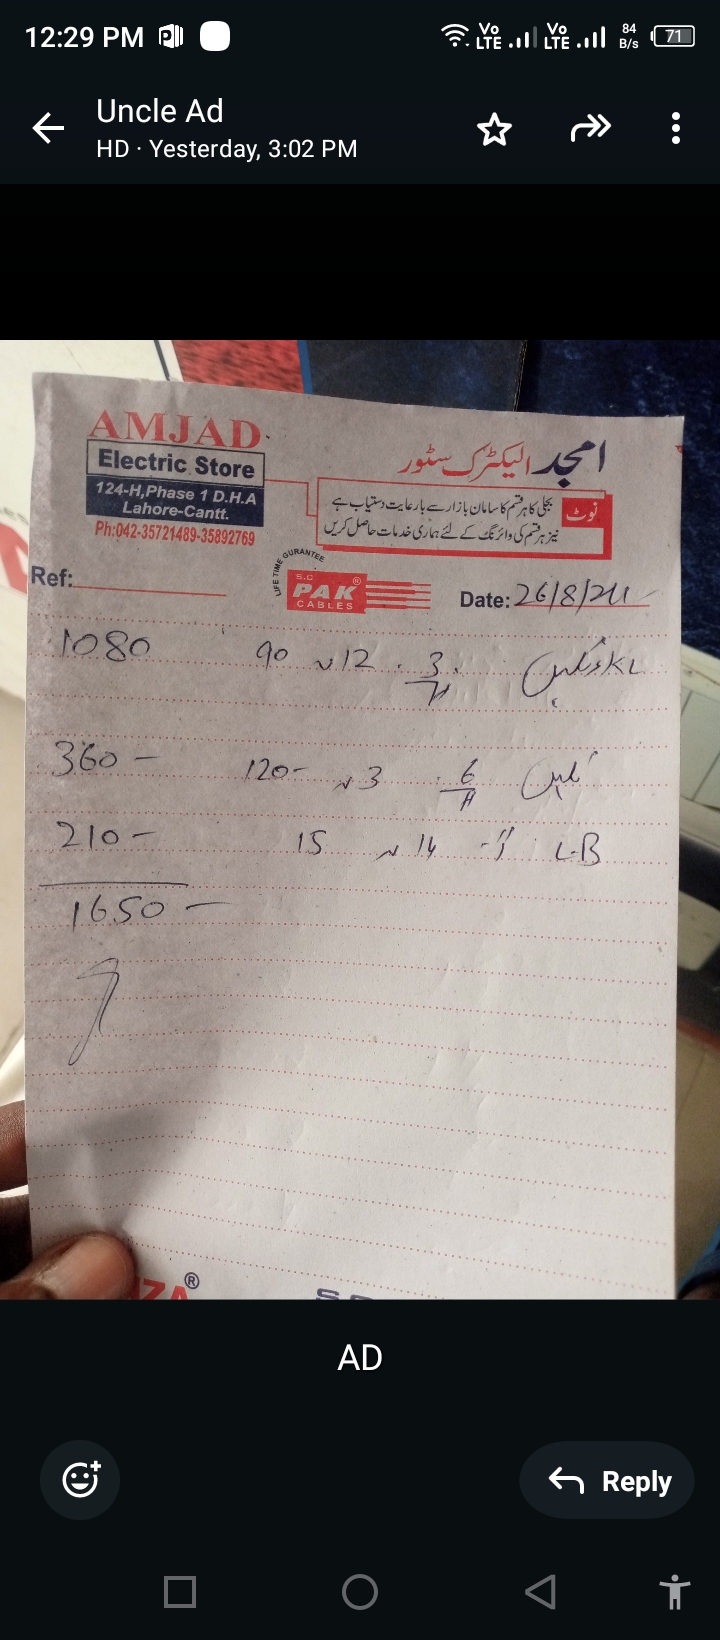 12:29 PM
Vo LTE Vo LTE 84 B/s 71
Uncle Ad
HD · Yesterday, 3:02 PM
AMJAD
Electric Store
124-H,Phase 1 D.H.A
Lahore-Cantt.
Ph:042-35721489-35892769
امجد الیکٹرک سٹور
نوٹ
بجلی کا ہر قسم کا سامان بازار سے بارعایت دستیاب ہے
نیز ہر قسم کی وائرنگ کے لئے ہماری خدمات حاصل کریں
Ref:
LIFE TIME GURANTEE
S.C
PAK ®
CABLES
Date: 26/8/24
1080 90 12 3
360 - 120- 3 6
210 - 15 14 1" L-B
1650 -
®
AD
Reply